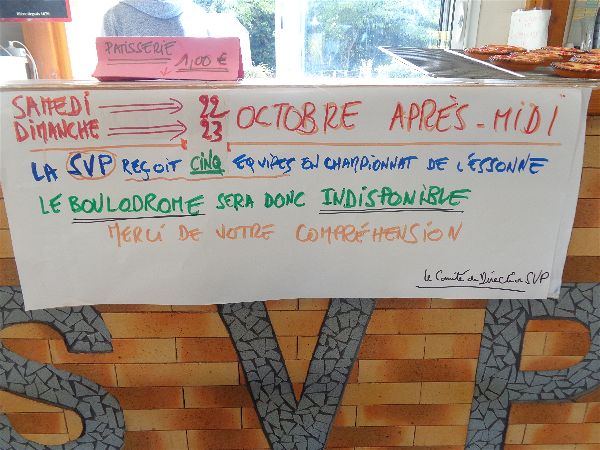 PATISSERIE
→ 1,00 €
SAMEDI → 22 OCTOBRE APRÈS-MIDI
DIMANCHE → 23
LA SVP REÇOIT CINQ EQUIPES EN CHAMPIONNAT DE L'ESSONNE
LE BOULODROME SERA DONC INDISPONIBLE
MERCI DE VOTRE COMPRÉHENSION
Le Comité de Directeur SVP
SVP